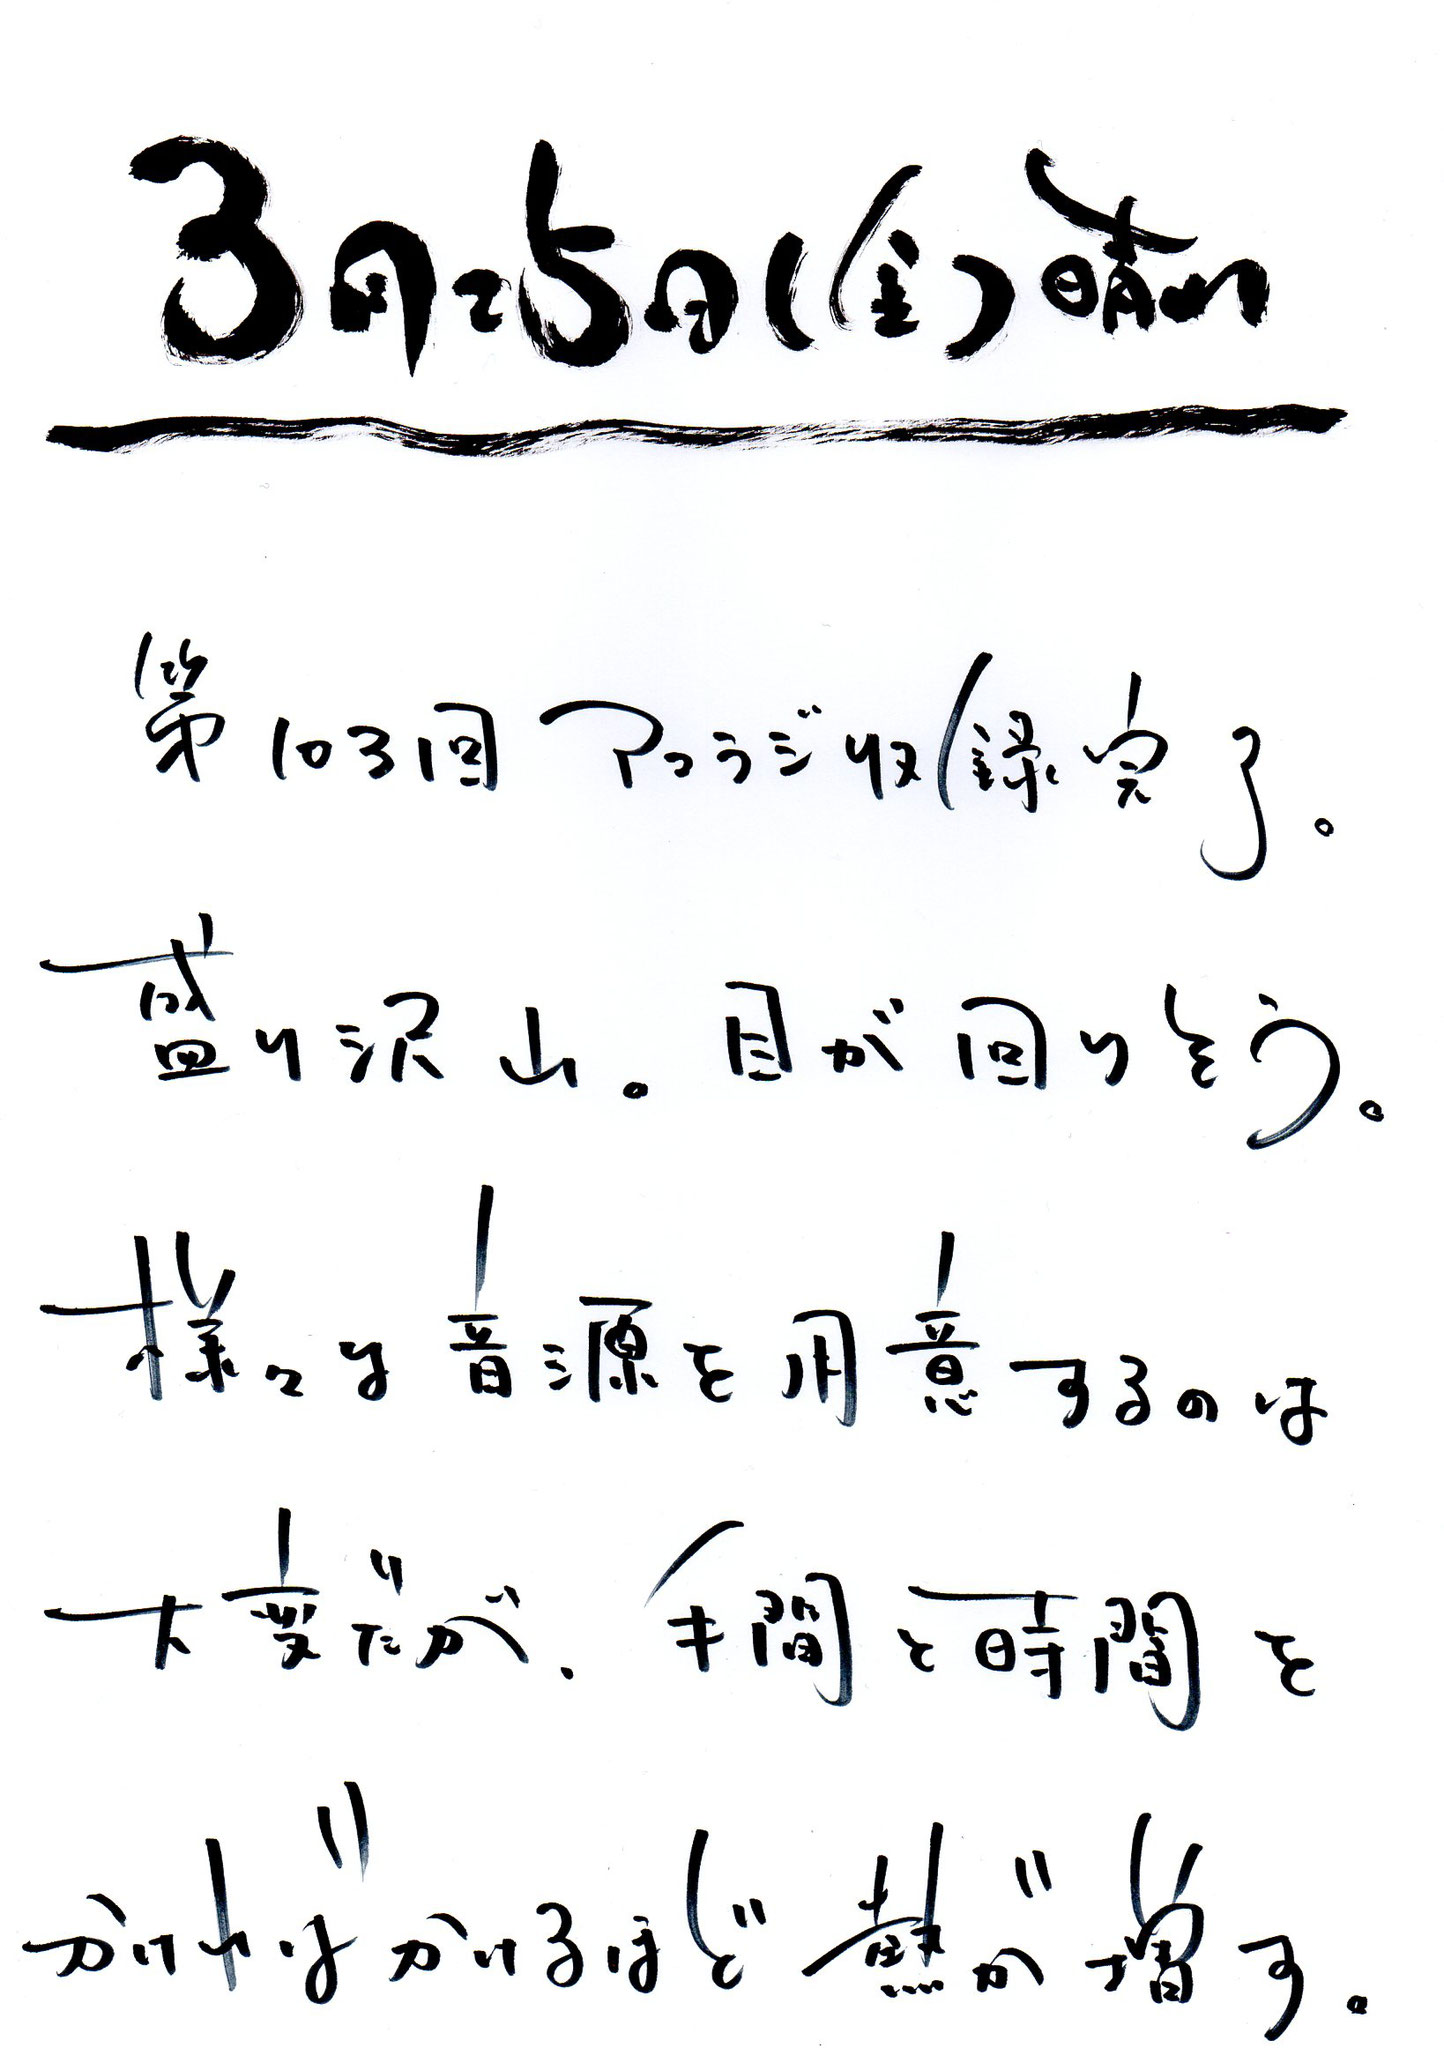 3月25日(金)晴れ
第103回アコラジ収録完了。
盛り沢山。目が回りそう。
様々な音源を用意するのは
大変だが、手間と時間を
かければかけるほど熱が増す。